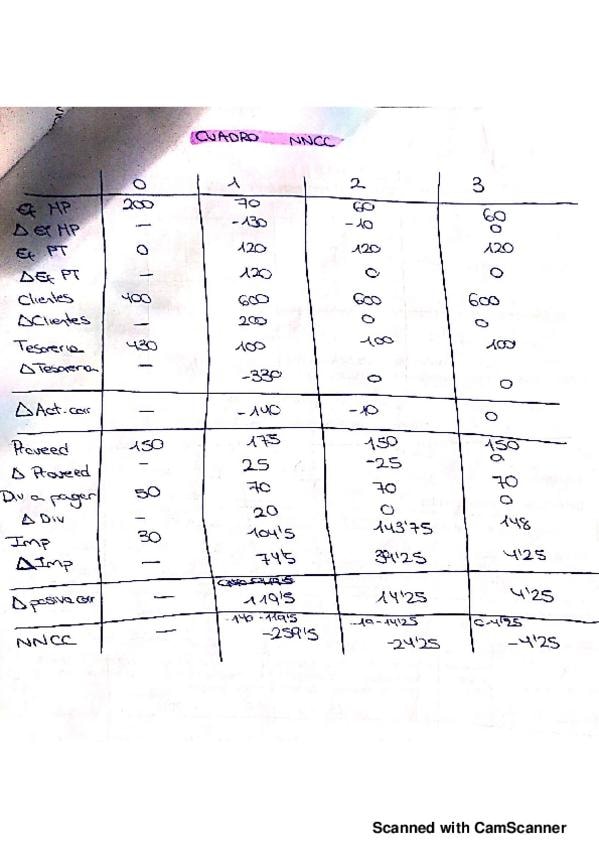 CUADRO NNCC
0 1 2 3
Ef MP 200 70 60 60
Δ Ef MP — -130 -10 0
Ef PT 0 120 120 120
Δ Ef PT — 120 0 0
Clientes 400 600 600 600
ΔClientes — 200 0 0
Tesoreria 430 100 100 100
Δ Tesoreria — -330 0 0
Δ Act. cor — -140 -10 0
Proveed 150 175 150 150
Δ Proveed — 25 -25 0
Div a pagar 50 70 70 70
Δ Div — 20 0 0
Imp 30 104'5 143'75 148
Δ Imp — 74'5 39'25 4'25
Δ pasivo cor — 119'5 14'25 4'25
-140 -119'5 -10 -14'25 0-4'25
NNCC — -259'5 -24'25 -4'25
Scanned with CamScanner